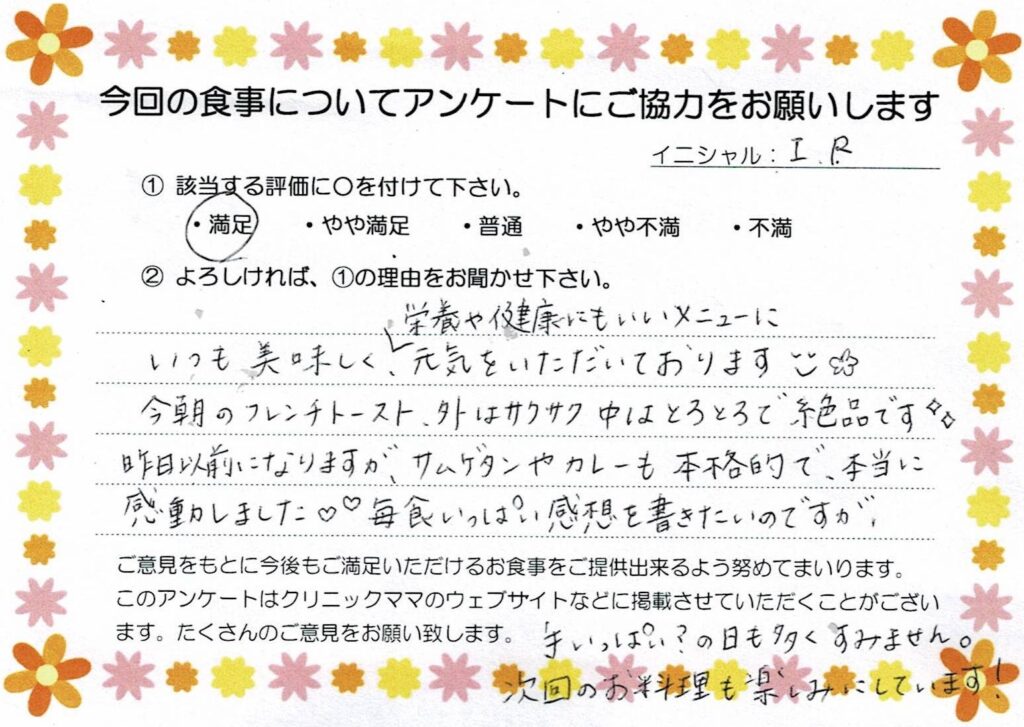 今回の食事についてアンケートにご協力をお願いします
イニシャル：I.R
① 該当する評価に〇を付けて下さい。
・満足 ・やや満足 ・普通 ・やや不満 ・不満
② よろしければ、①の理由をお聞かせ下さい。
栄養や健康にもいいメニューに
いつも美味しく、元気をいただいております
今朝のフレンチトースト、外はサクサク中はとろとろで絶品です
昨日以前になりますが、サムゲタンやカレーも本格的で、本当に
感動しました♡♡毎食いっぱい感想を書きたいのですが、
ご意見をもとに今後もご満足いただけるお食事をご提供出来るよう努めてまいります。
このアンケートはクリニックママのウェブサイトなどに掲載させていただくことがござい
ます。たくさんのご意見をお願い致します。
手いっぱい？の日も多くすみません。
次回のお料理も楽しみにしています！